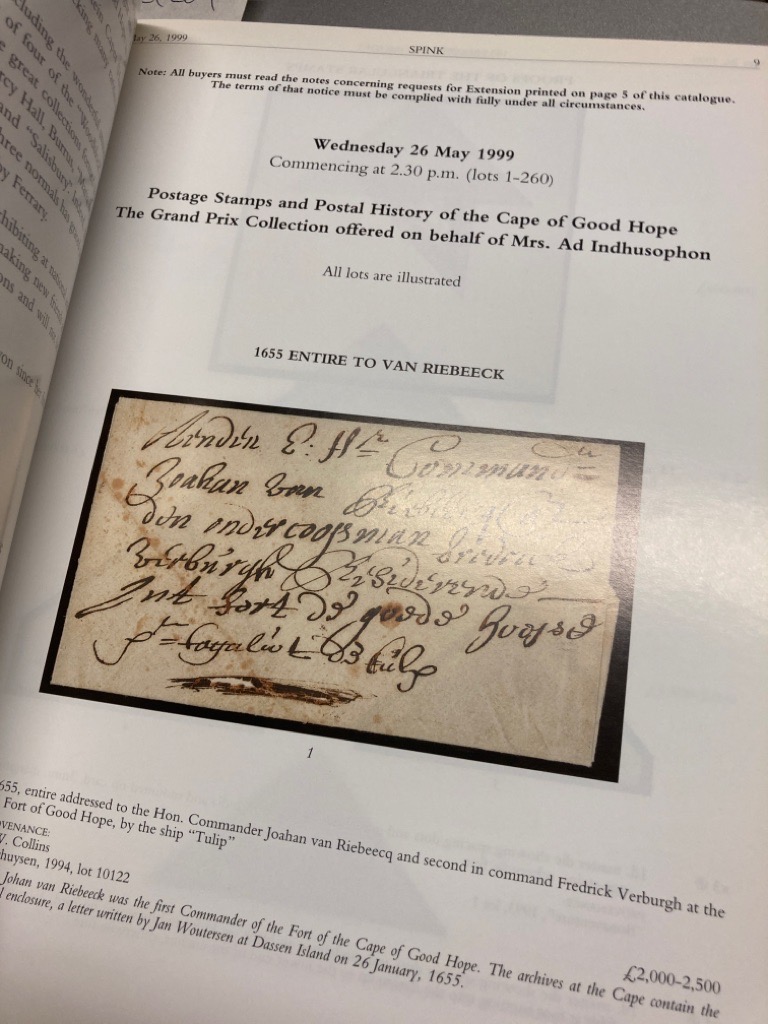 cluding the wonder
of four of the "Wood
great collections for
rcy Hall, Burrus,
and "Salisbury".
hree normals
by Ferrary.
hibiting at
making new
ons and will
on since
ay 26, 1999
SPINK
9
Note: All buyers must read the notes concerning requests for Extension printed on page 5 of this catalogue.
The terms of that notice must be complied with fully under all circumstances.
Wednesday 26 May 1999
Commencing at 2.30 p.m. (lots 1-260)
Postage Stamps and Postal History of the Cape of Good Hope
The Grand Prix Collection offered on behalf of Mrs. Ad Indhusophon
All lots are illustrated
1655 ENTIRE TO VAN RIEBEECK
E: Hr Command=
Joahan van
den ondercoopman
Verburgh Residerende
Int fort de goede hoope
1
655, entire addressed to the Hon. Commander Joahan van Riebeecq and second in command Fredrick Verburgh at the
Fort of Good Hope, by the ship "Tulip"
VENANCE:
W. Collins
huysen, 1994, lot 10122
Johan van Riebeeck was the first Commander of the Fort of the Cape of Good Hope. The archives at the Cape contain the
l enclosure, a letter written by Jan Woutersen at Dassen Island on 26 January, 1655.
£2,000-2,500